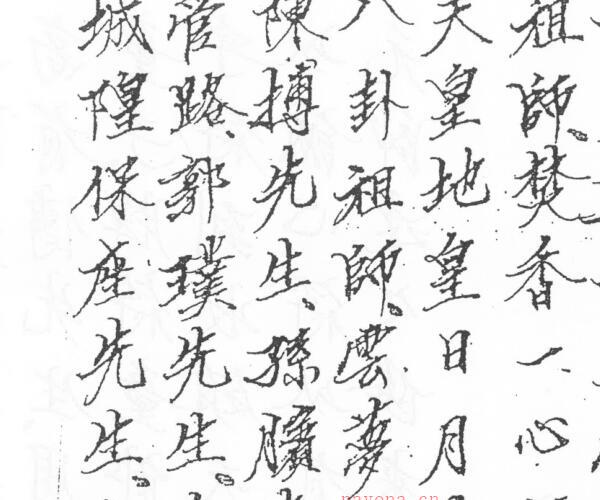 祖師、焚香一心
天皇地皇日月
八卦祖師、雲夢
陳摶先生、孫臏
管路、郭璞先生、
城隍保座先生、
nayona.cn